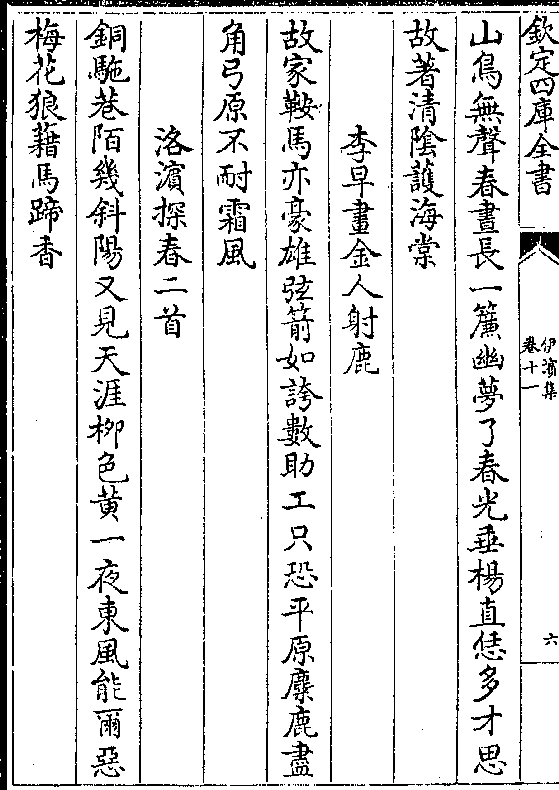 欽定四庫全書
伊濱集
卷十一
六
山鳥無聲春晝長一簾幽夢了春光垂楊直恁多才思
故著清陰護海棠
李早畫金人射鹿
故家鞍馬亦豪雄弦箭如誇數助工只恐平原麋鹿盡
角弓原不耐霜風
洛濱探春二首
銅駞巷陌幾斜陽又見天涯栁色黄一夜東風能爾惡
梅花狼藉馬蹄香